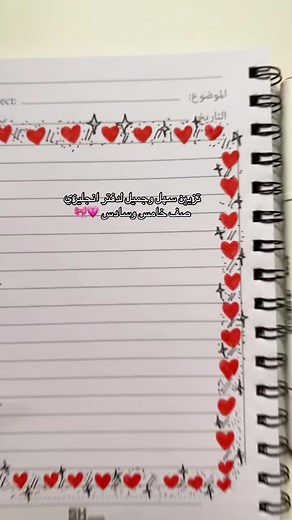 الموضوع:
ect:
التاريخ
تزيين سهل وجميل لدفتر انجليزي
صف خامس وسادس 🎀💗